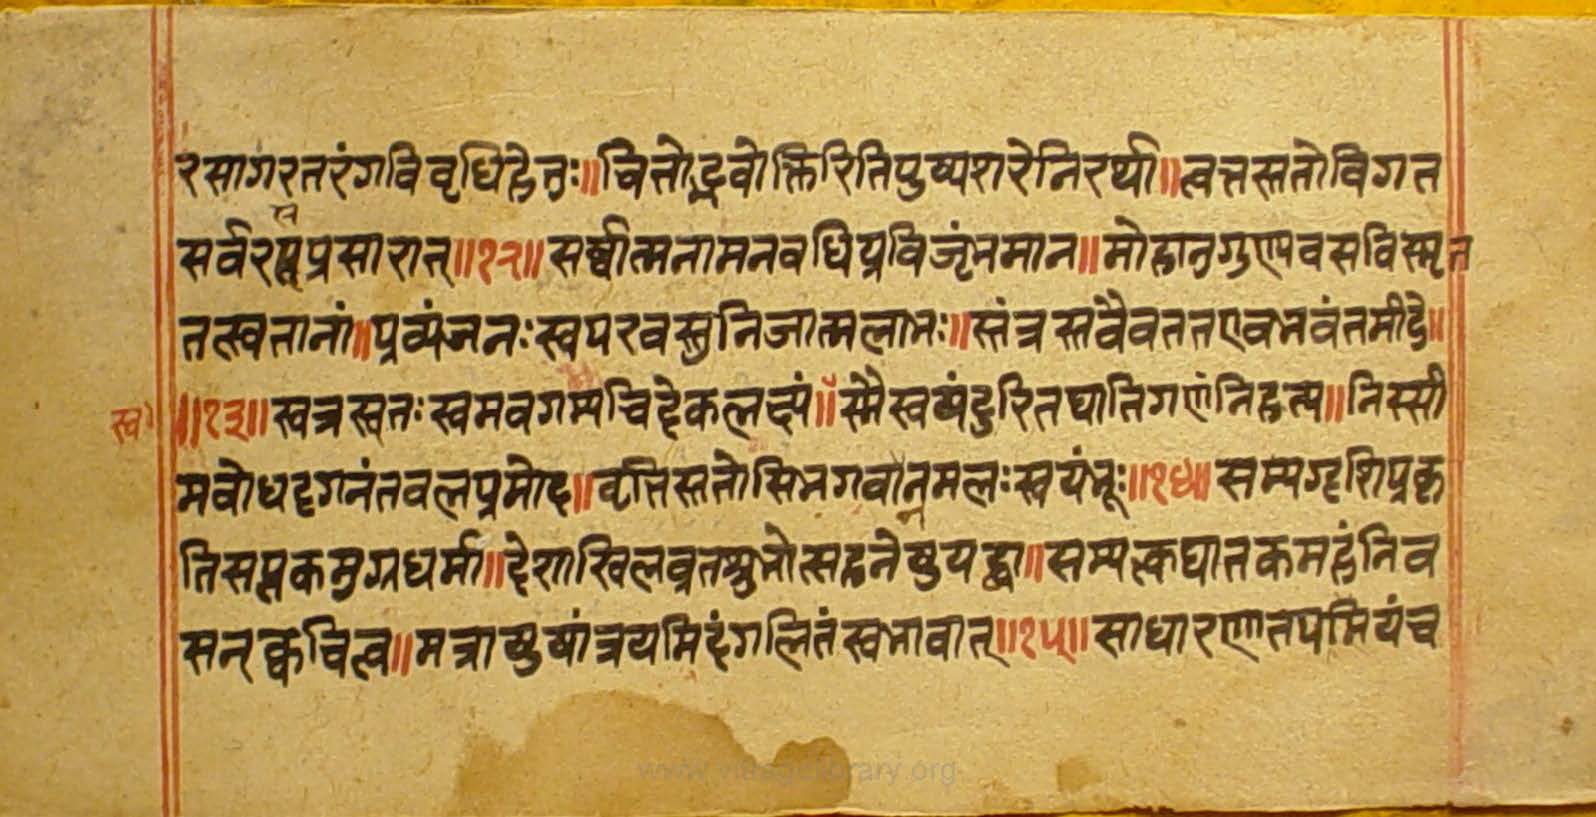 रसागरतरंगविवृधिहेतुः॥चित्तोद्भवोक्तिरितिपुष्पशरेनिरर्था॥त्वत्तस्ततोविगत
सर्वरसप्रसारात्॥१२॥सर्व्वात्मनामनवधिप्रविजृंभमान॥मोहानुगुणपवसविस्मृत
तत्स्वतानां॥प्रव्यंजनःस्वपरवस्तुनिजात्मलाभः॥स्तंत्रस्तवैवततएवभवंतमीडे॥
॥१३॥स्वत्रस्वतःस्वमवगम्यचिदेकलक्ष्यं॥स्मैस्वष्पंदुरितघातिगणंनिहत्य॥निस्सी
स्व
मवोधदृगनंतवलप्रमोद॥वृत्तिस्ततोसिभगवानमलःस्वयंभूः॥१४॥सम्यगृशिप्रकृ
तिसप्तकमुग्रधर्मा॥द्देशाखिलव्रतम्रुभोत्सहनेषुयद्धा॥सम्यत्कघातकमहंनिव
सन्क्वचित्व॥मत्रायुषांत्रयमिदंगलितंस्वभावात्॥१५॥साधारणातपमियंच
www.vitragvlibrary.org